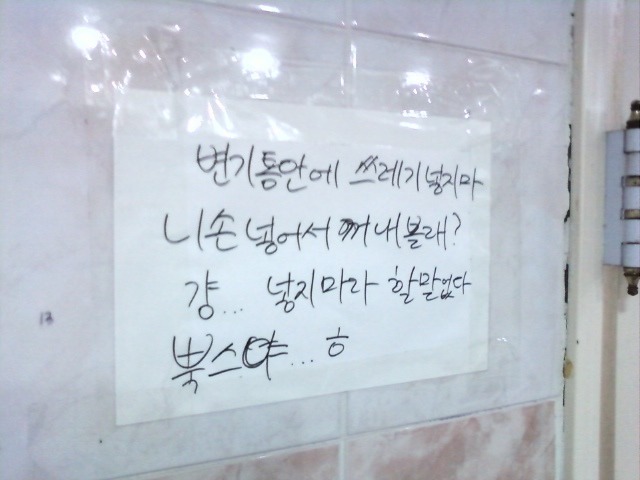 변기통안에 쓰레기넣지마
니손 넣어서 꺼내볼래?
걍... 넣지마라 할말없다
뿍스야...ㅎ
13